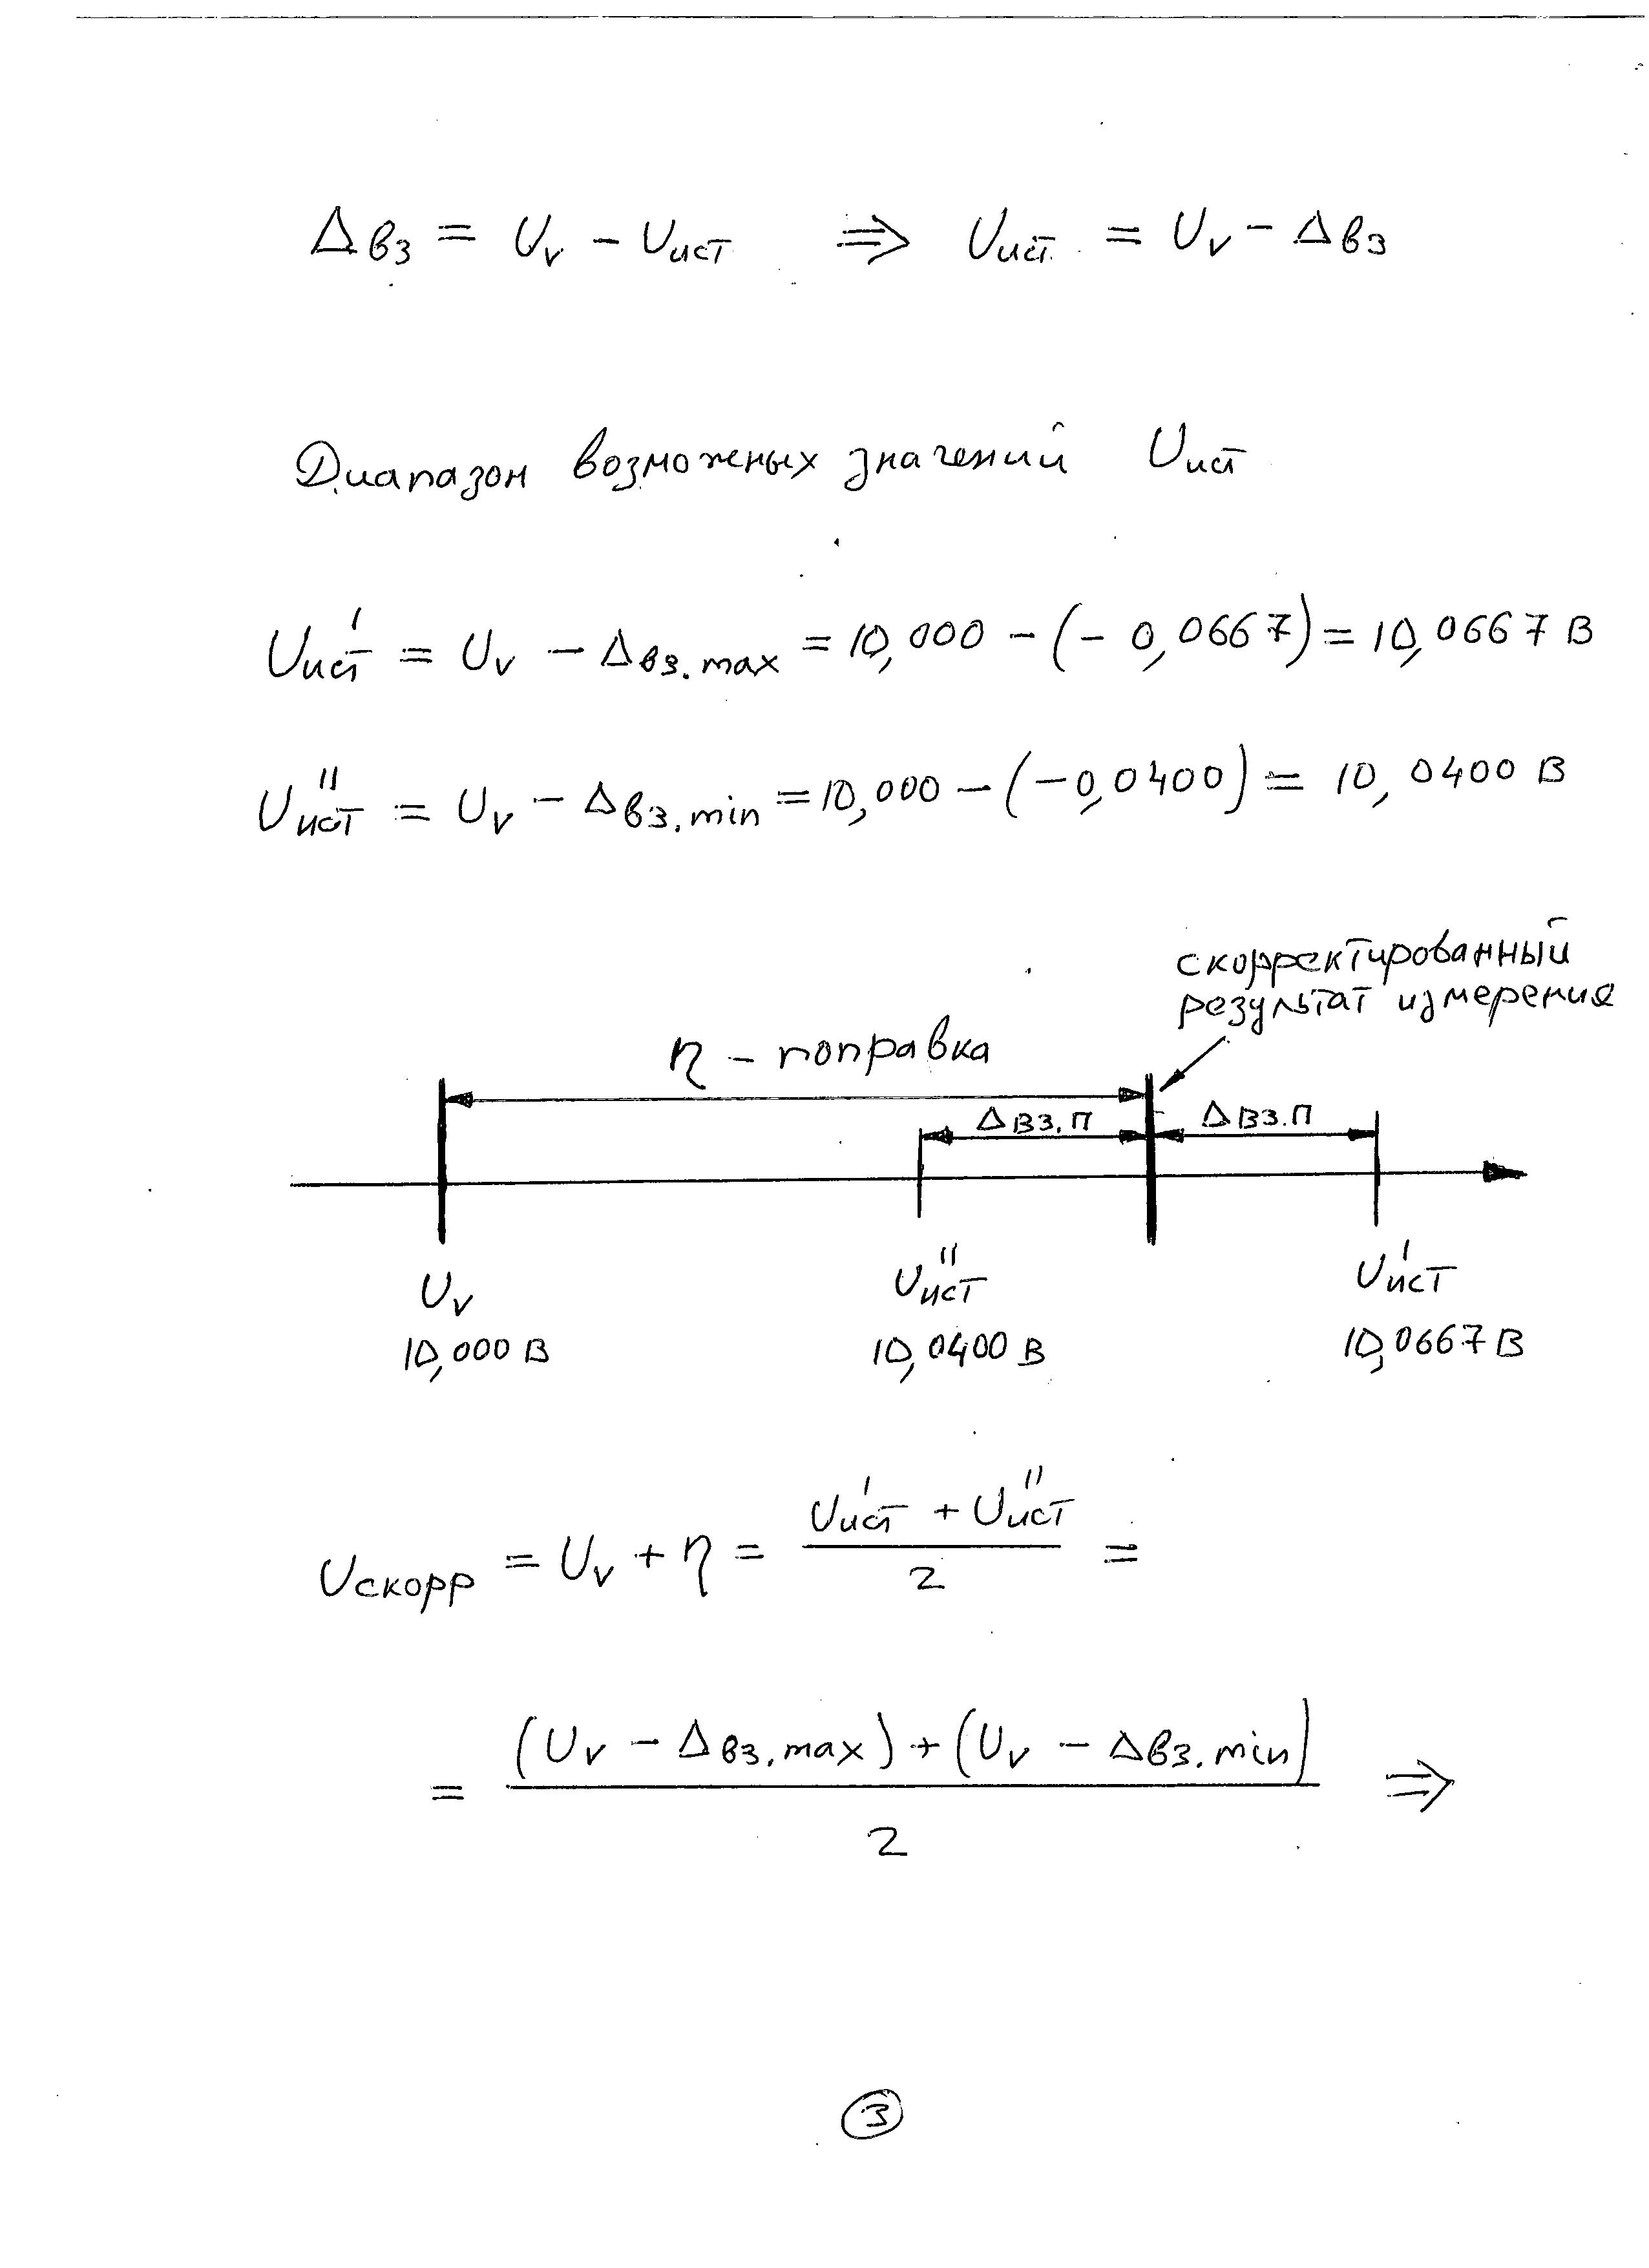 Δвз = Uv − Uист ⇒ Uист = Uv − Δвз
Диапазон возможных значений Uист
Uист' = Uv − Δвз.max = 10,000 − (− 0,0667) = 10,0667 В
Uист'' = Uv − Δвз.min = 10,000 − (−0,0400) = 10,0400 В
скорректированный
результат измерения
η – поправка
Δвз.п Δвз.п
Uv Uист'' Uист'
10,000 В 10,0400 В 10,0667 В
Uскорр = Uv + η = (Uист' + Uист'') / 2 =
= ((Uv − Δвз.max) + (Uv − Δвз.min)) / 2 ⇒
3